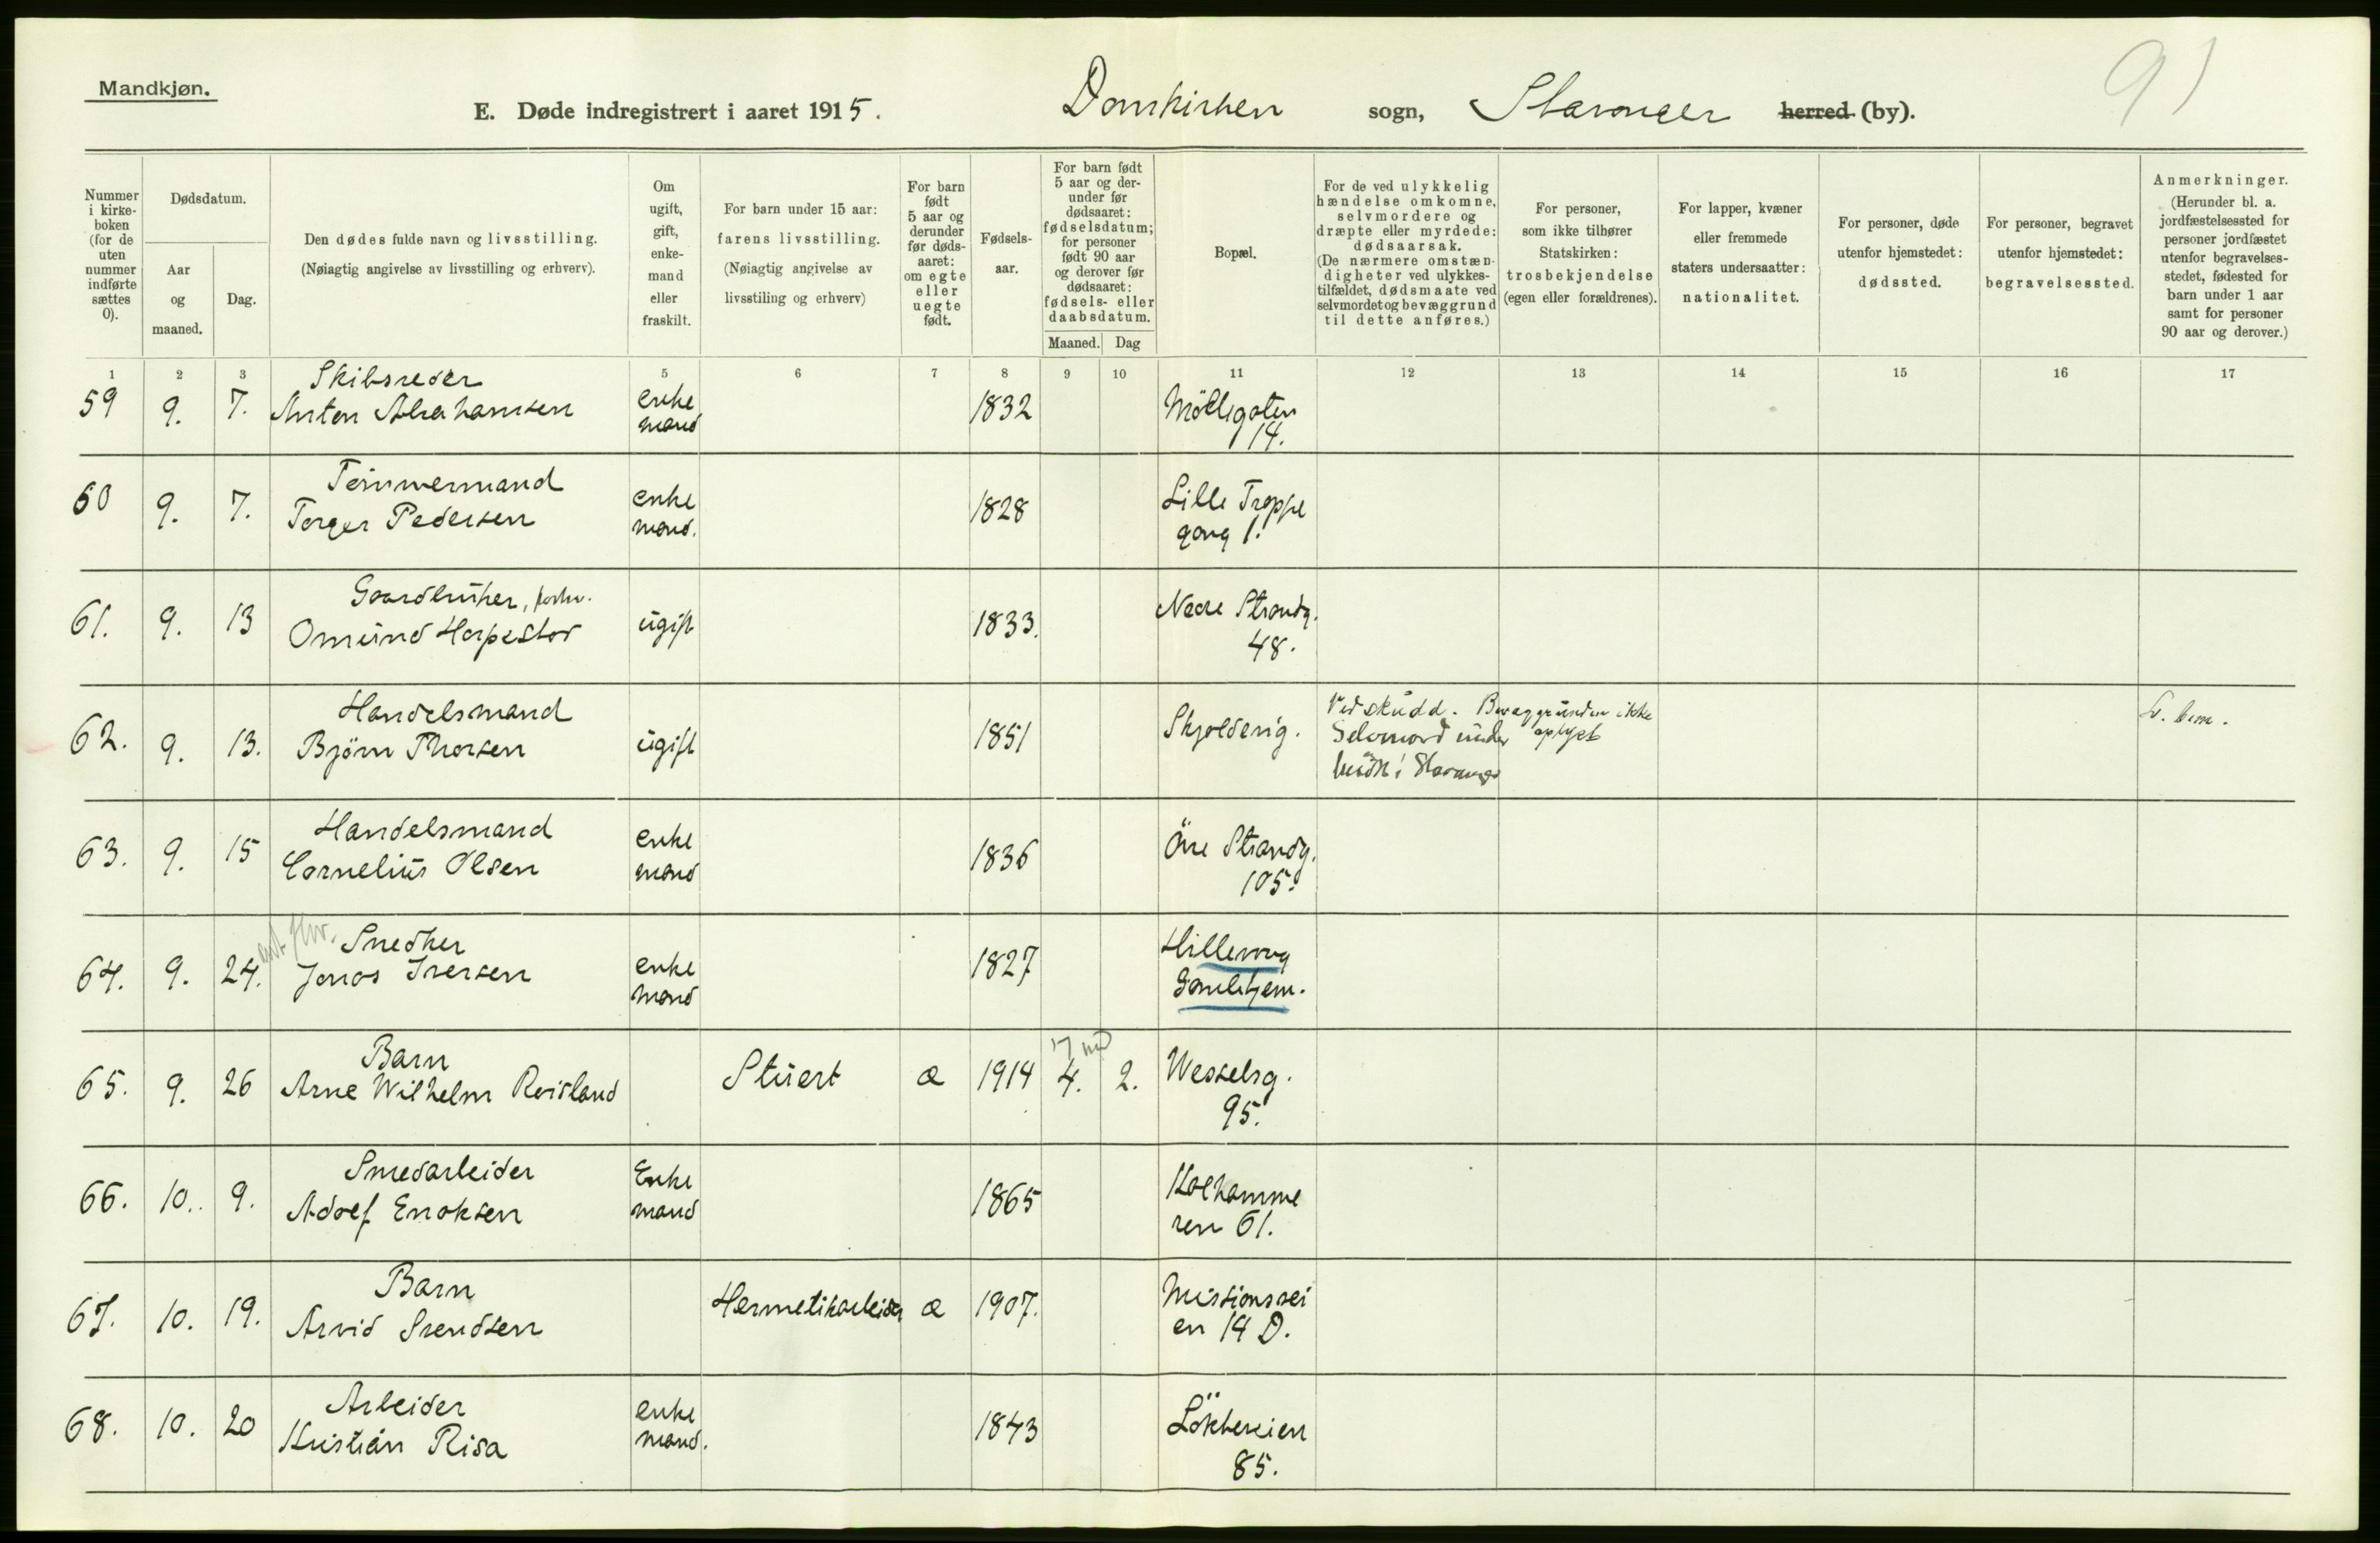 91
Mandkjøn.
E. Døde indregistrert i aaret 1915. Domkirken sogn, Stavanger herred (by).
Nummer i kirkeboken (for de uten nummer indførte sættes 0).
Dødsdatum.
Aar og maaned.
Dag.
Den dødes fulde navn og livsstilling.
(Nøiagtig angivelse av livsstilling og erhverv).
Om ugift, gift, enkemand eller fraskilt.
For barn under 15 aar: farens livsstilling.
(Nøiagtig angivelse av livsstiling og erhverv)
For barn født 5 aar og derunder før dødsaaret: om egte eller uegte født.
Fødselsaar.
For barn født 5 aar og derunder før dødsaaret: fødselsdatum; for personer født 90 aar og derover før dødsaaret: fødsels- eller daabsdatum.
Maaned. Dag
Bopæl.
For de ved ulykkelig hændelse omkomne, selvmordere og dræpte eller myrdede: dødsaarsak.
(De nærmere omstændigheter ved ulykkestilfældet, dødsmaate ved selvmordet og bevæggrund til dette anføres.)
For personer, som ikke tilhører Statskirken: trosbekjendelse (egen eller forældrenes).
For lapper, kvæner eller fremmede staters undersaatter: nationalitet.
For personer, døde utenfor hjemstedet: dødssted.
For personer, begravet utenfor hjemstedet: begravelsessted.
Anmerkninger.
(Herunder bl. a. jordfæstelsessted for personer jordfæstet utenfor begravelsesstedet, fødested for barn under 1 aar samt for personer 90 aar og derover.)
1 2 3 5 6 7 8 9 10 11 12 13 14 15 16 17
Skibsreder
59 9. 7. Anton Abrahamsen enke mand 1832 Mölligaten 14.
Tömmermand
60 9. 7. Torger Pedersen enke mand. 1828 Lille Trappe gang 1.
Gaardbruker, forhv.
61. 9. 13 Omund Harpestad ugift 1833. Nedre Strandg. 48.
Handelsmand
62. 9. 13. Björn Thorsen ugift 1851 Skjolderig. Ved skudd. Bevæggrunden ikke oplyst Selvmord under i Stavanger
Handelsmand
63. 9. 15 Cornelius Olsen enke mand 1836 Övre Strandg. 105.
Snedker
64. 9. 24. Jonas Iversen enke mand 1827 Hillevaag Gamlehjem.
Barn
65. 9. 26 Arne Wilhelm Roisland Stuert æ 1914 4. 2. Wesselsg. 95.
Smedarbeider
66. 10. 9. Adolf Enoksen Enke mand 1865 Kalhamme ren 61.
Barn
67. 10. 19. Arvid Svendsen Hermetikarbeider æ 1907. Missionsvei en 14 D.
Arbeider
68. 10. 20 Kristian Risa enke mand. 1843 Lökkeveien 85.